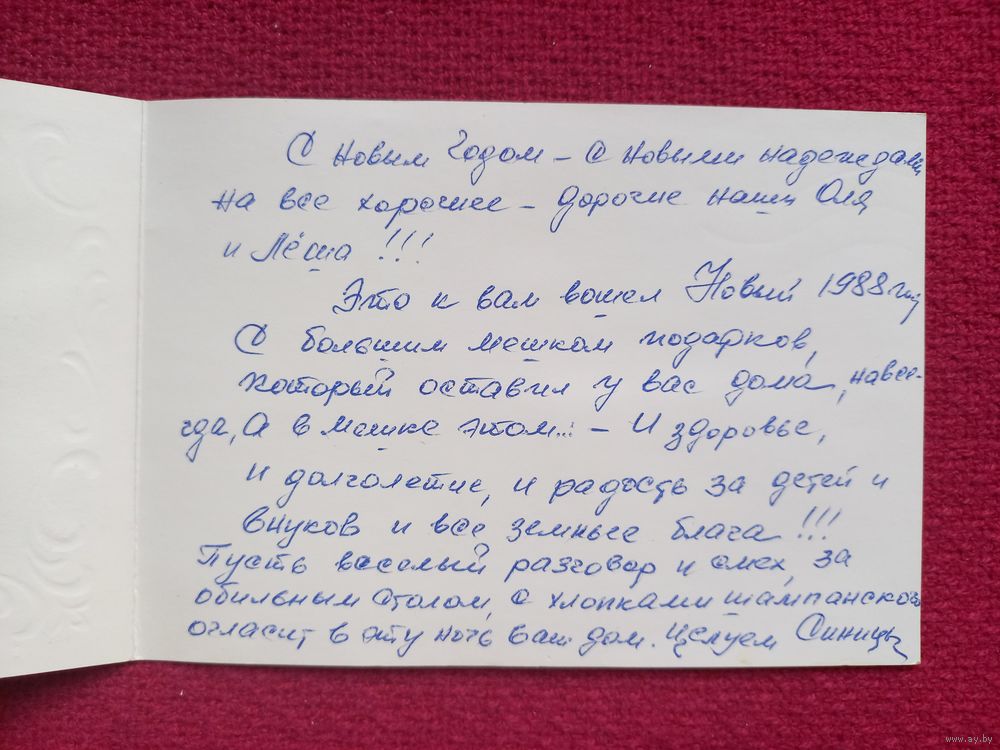 С Новым Годом – с новыми надеждами
на все хорошее – дорогие наши Оля
и Лёша !!!
Это к вам вошел Новый 1988 год
С большим мешком подарков,
который оставил у вас дома, навсе-
гда, А в мешке этом... – И здоровье,
и долголетие, и радость за детей и
внуков и все земные блага !!!
Пусть веселый разговор и смех, за
обильным столом, с хлопками шампанского
огласит в эту ночь ваш дом. Целуем Синицы
www.ay.by